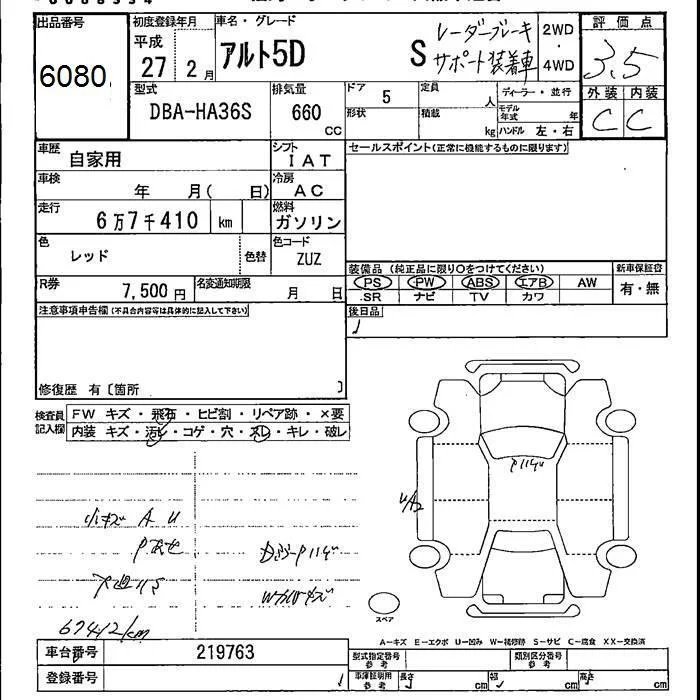 出品番号 初度登録年月 車名・グレード 評価点
6080 平成 27 2月 アルト5D S レーダーブレーキ サポート装着車 2WD・4WD 3.5
型式 排気量 ドア 定員 ディーラー・並行 外装 内装
DBA-HA36S 660 CC 5 人 モデル年式 年 C C
形状 積載 kg ハンドル 左・右
車歴 自家用 シフト IAT セールスポイント(正常に機能するものに限ります)
車検 年 月( 日) 冷房 AC
走行 6万7千410 km 燃料 ガソリン
色 レッド 色替 色コード ZUZ
装備品(純正品に限り○をつけてください) 新車保証書
R券 7,500円 名変通知期限 月 日 PS PW ABS エアB AW 有・無
SR ナビ TV カワ
注意事項申告欄(不具合内容等は具体的に記入して下さい) 後日品
修復歴 有〔箇所 〕
検査員記入欄 FW キズ・飛石・ヒビ割・リペア跡・×要
内装 キズ・汚れ・コゲ・穴・スレ・キレ・破レ
小キズ A U
67412km
スペア
A-キズ E-エクボ U-凹み W-補修跡 S-サビ C-腐食 XX-交換済
車台番号 219763 型式指定番号 参考 類別区分番号 参考
登録番号 車庫証明用 参考 長さ cm 幅 cm 高さ cm